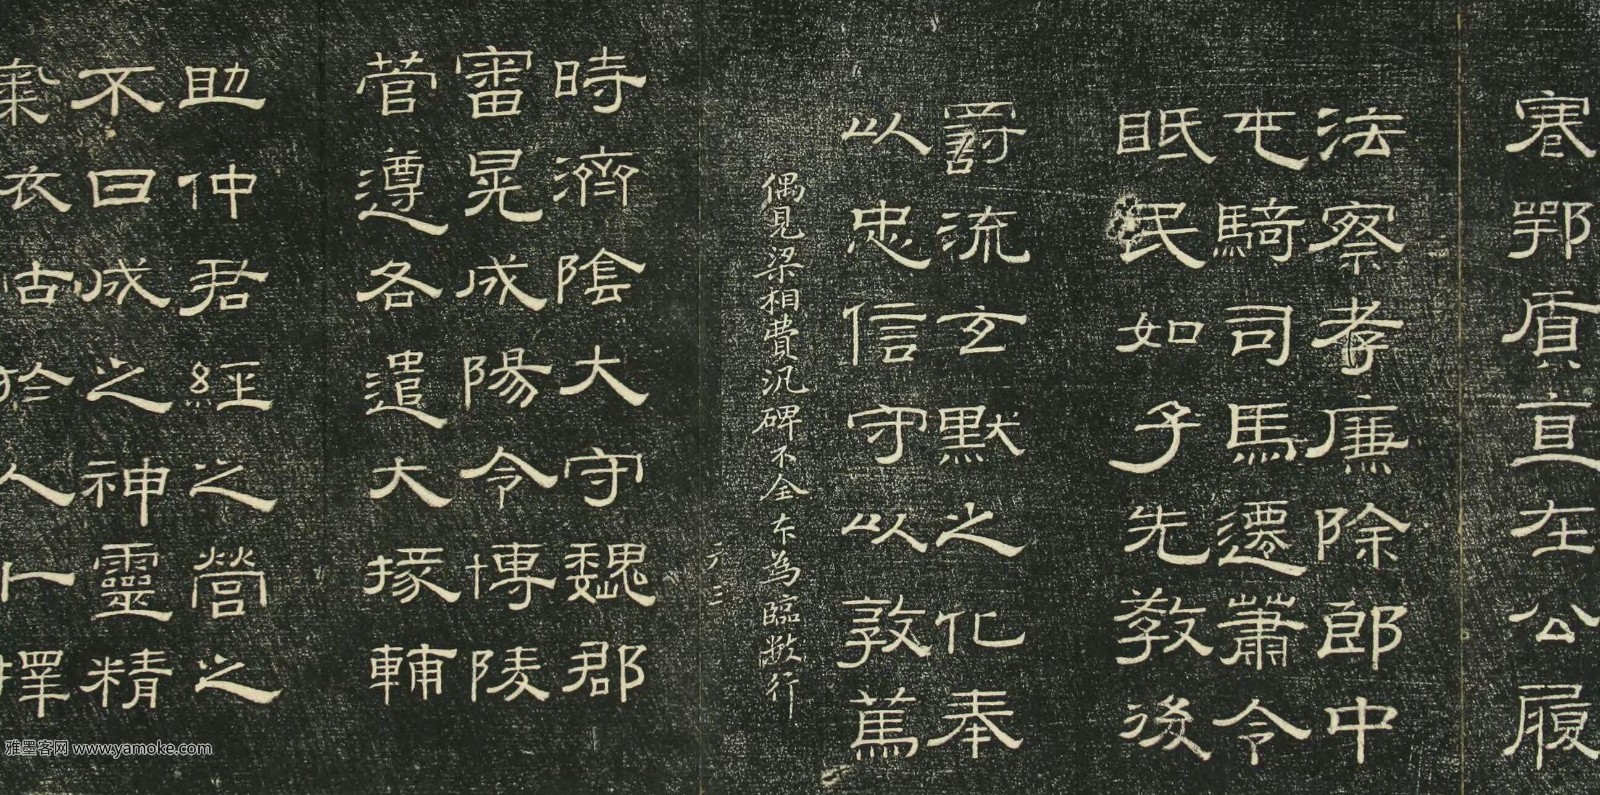 寋鄂質直在公履
法察孝廉除郎中
屯騎司馬遷蕭令
眡民如子先教後
罰流玄默之化奉
以忠信守以敦篤
偶見梁相費汎碑不全本為臨數行
元三
時濟陰大守魏郡
審晃成陽令博陵
菅遵各遣大掾輔
助仲君經之營之
不日成之神靈精
氣衣古於人卜擇
雅墨客网 www.yamoke.com